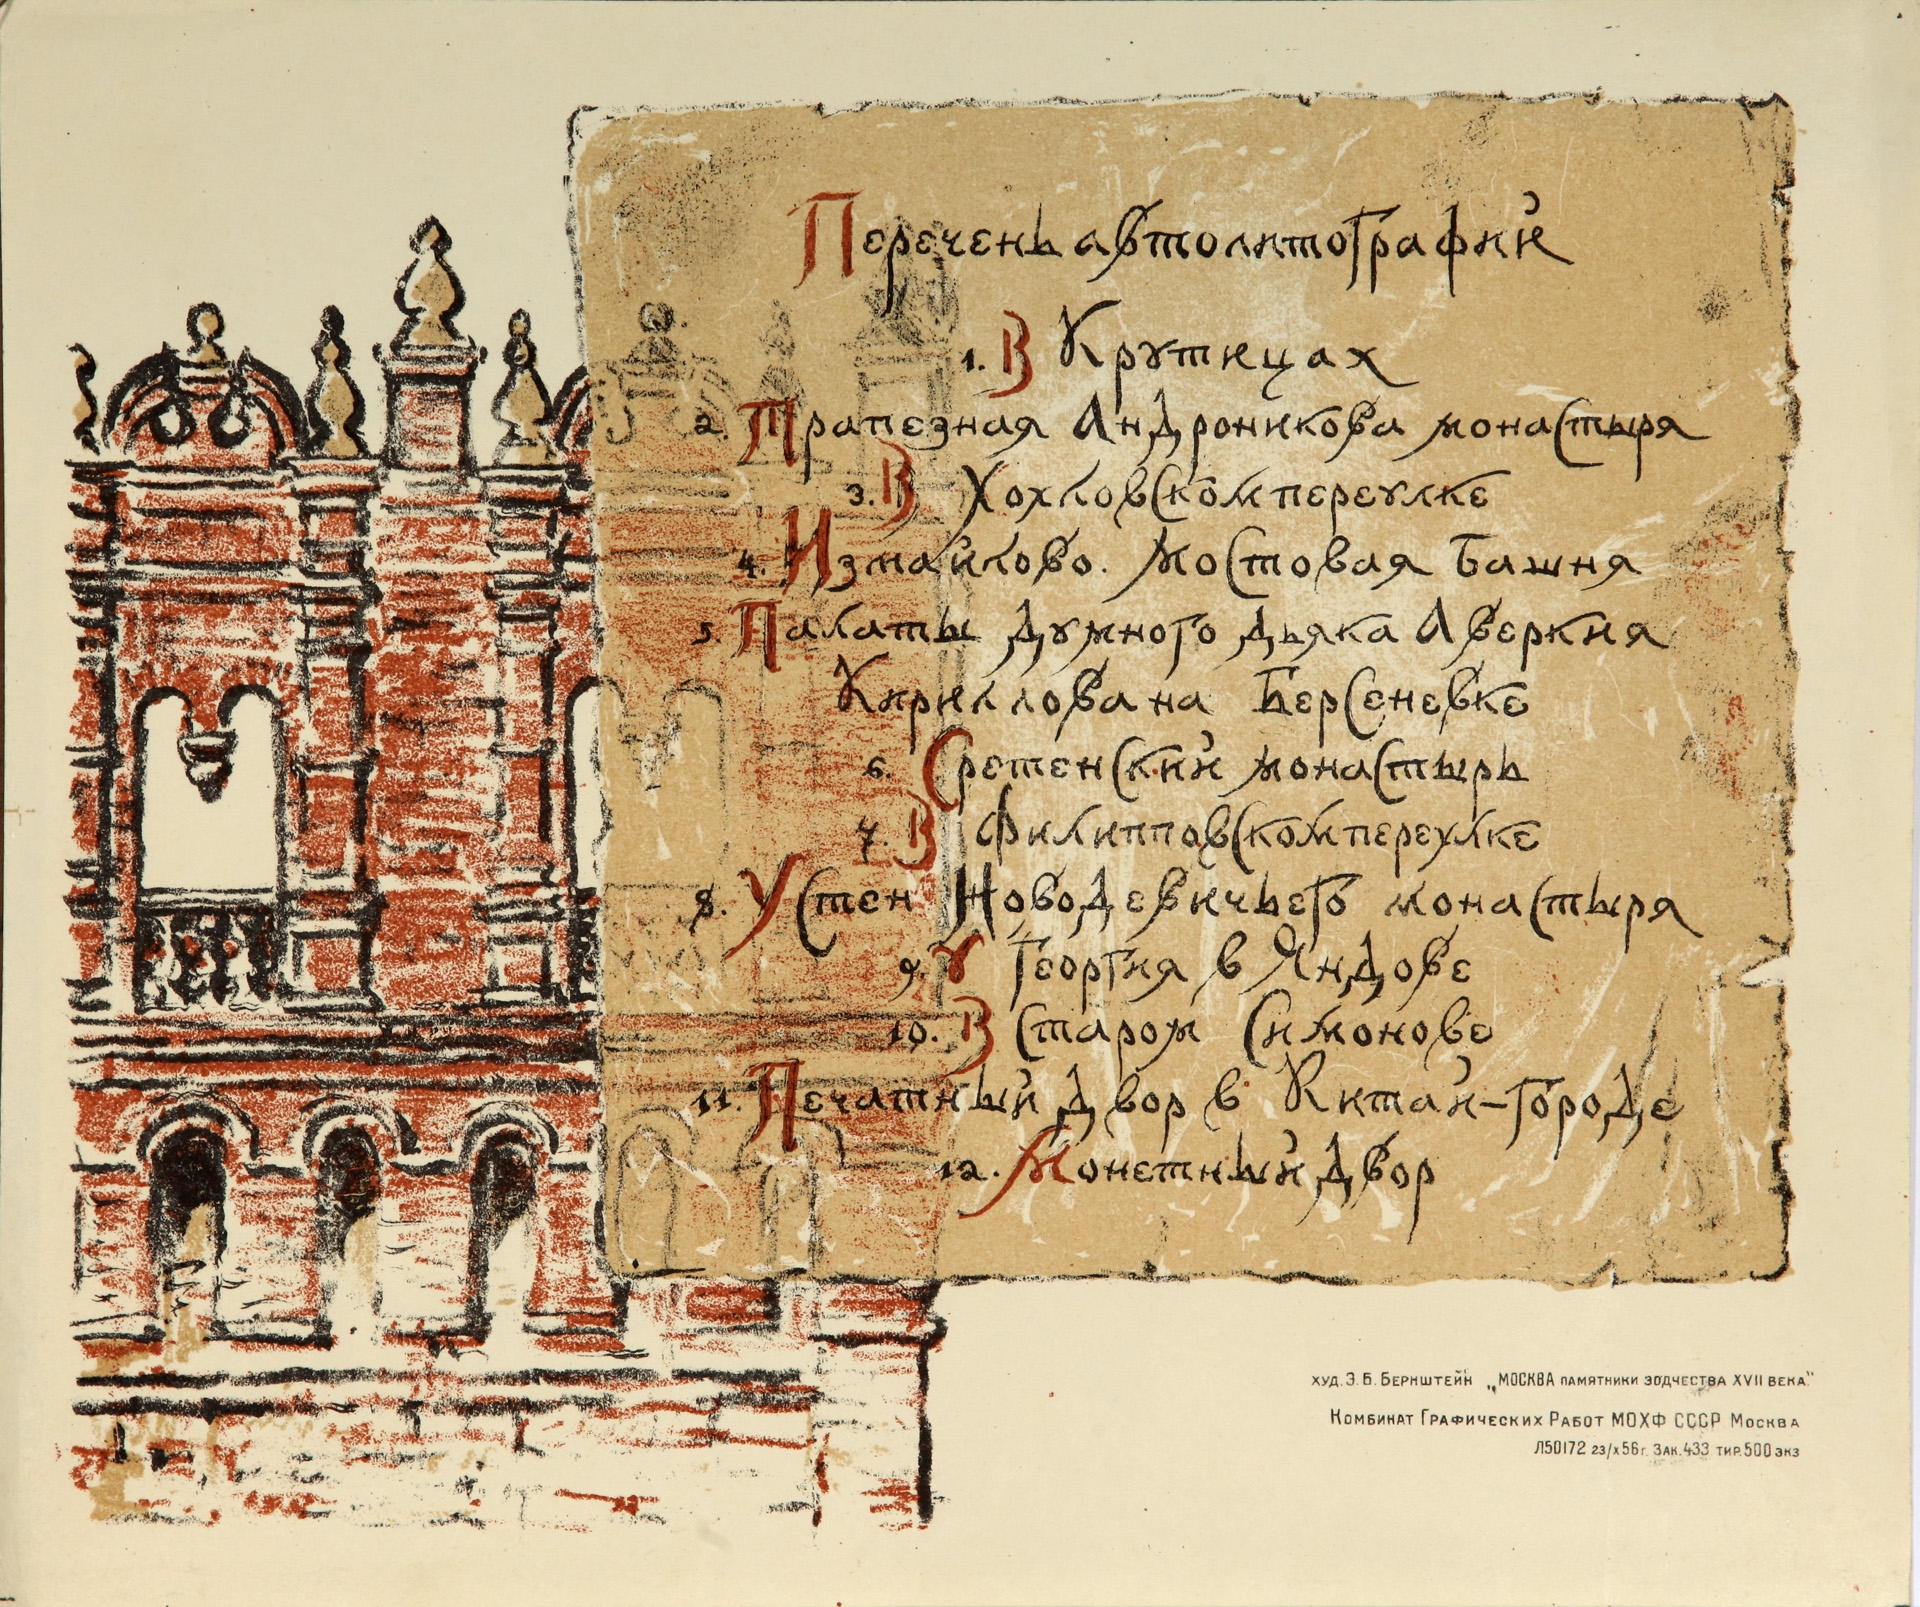 Перечень автолитографий
1. В Крутицах
2. Трапезная Андроникова монастыря
3. В Хохловском переулке
4. Измайлово. Мостовая башня
5. Палаты думного дьяка Аверкия
Кириллова на Берсеневке
6. Сретенский монастырь
7. В Филипповском переулке
8. У стен Новодевичьего монастыря
9. У Георгия в Яндове
10. В Старом Симонове
11. Печатный двор в Китай-городе
12. Монетный двор
худ. Э. Б. Бернштейн „МОСКВА памятники зодчества XVII века"
Комбинат Графических Работ МОХФ СССР Москва
Л50172 23/X 56 г. Зак. 433 тир. 500 экз